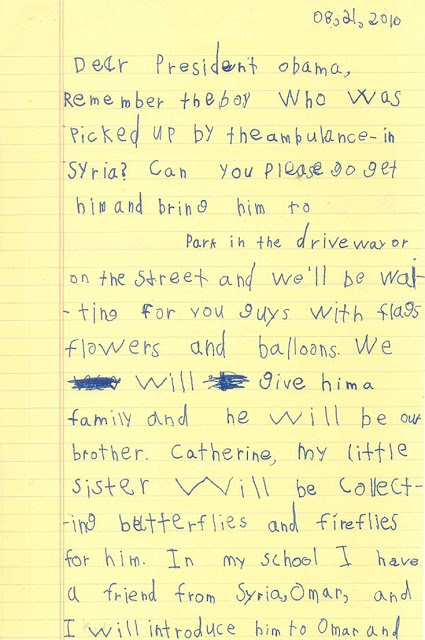 08,21,2016
Dear President obama,
Remember the boy who was
picked up by the ambulance - in
Syria? Can you please go get
him and bring him to
Park in the driveway or
on the street and we'll be wai-
-ting for you guys with flags
flowers and balloons. We
will give him a
family and he will be our
brother. Catherine, my little
sister will be collect-
-ing butterflies and fireflies
for him. In my school I have
a friend from Syria, Omar, and
I will introduce him to Omar and